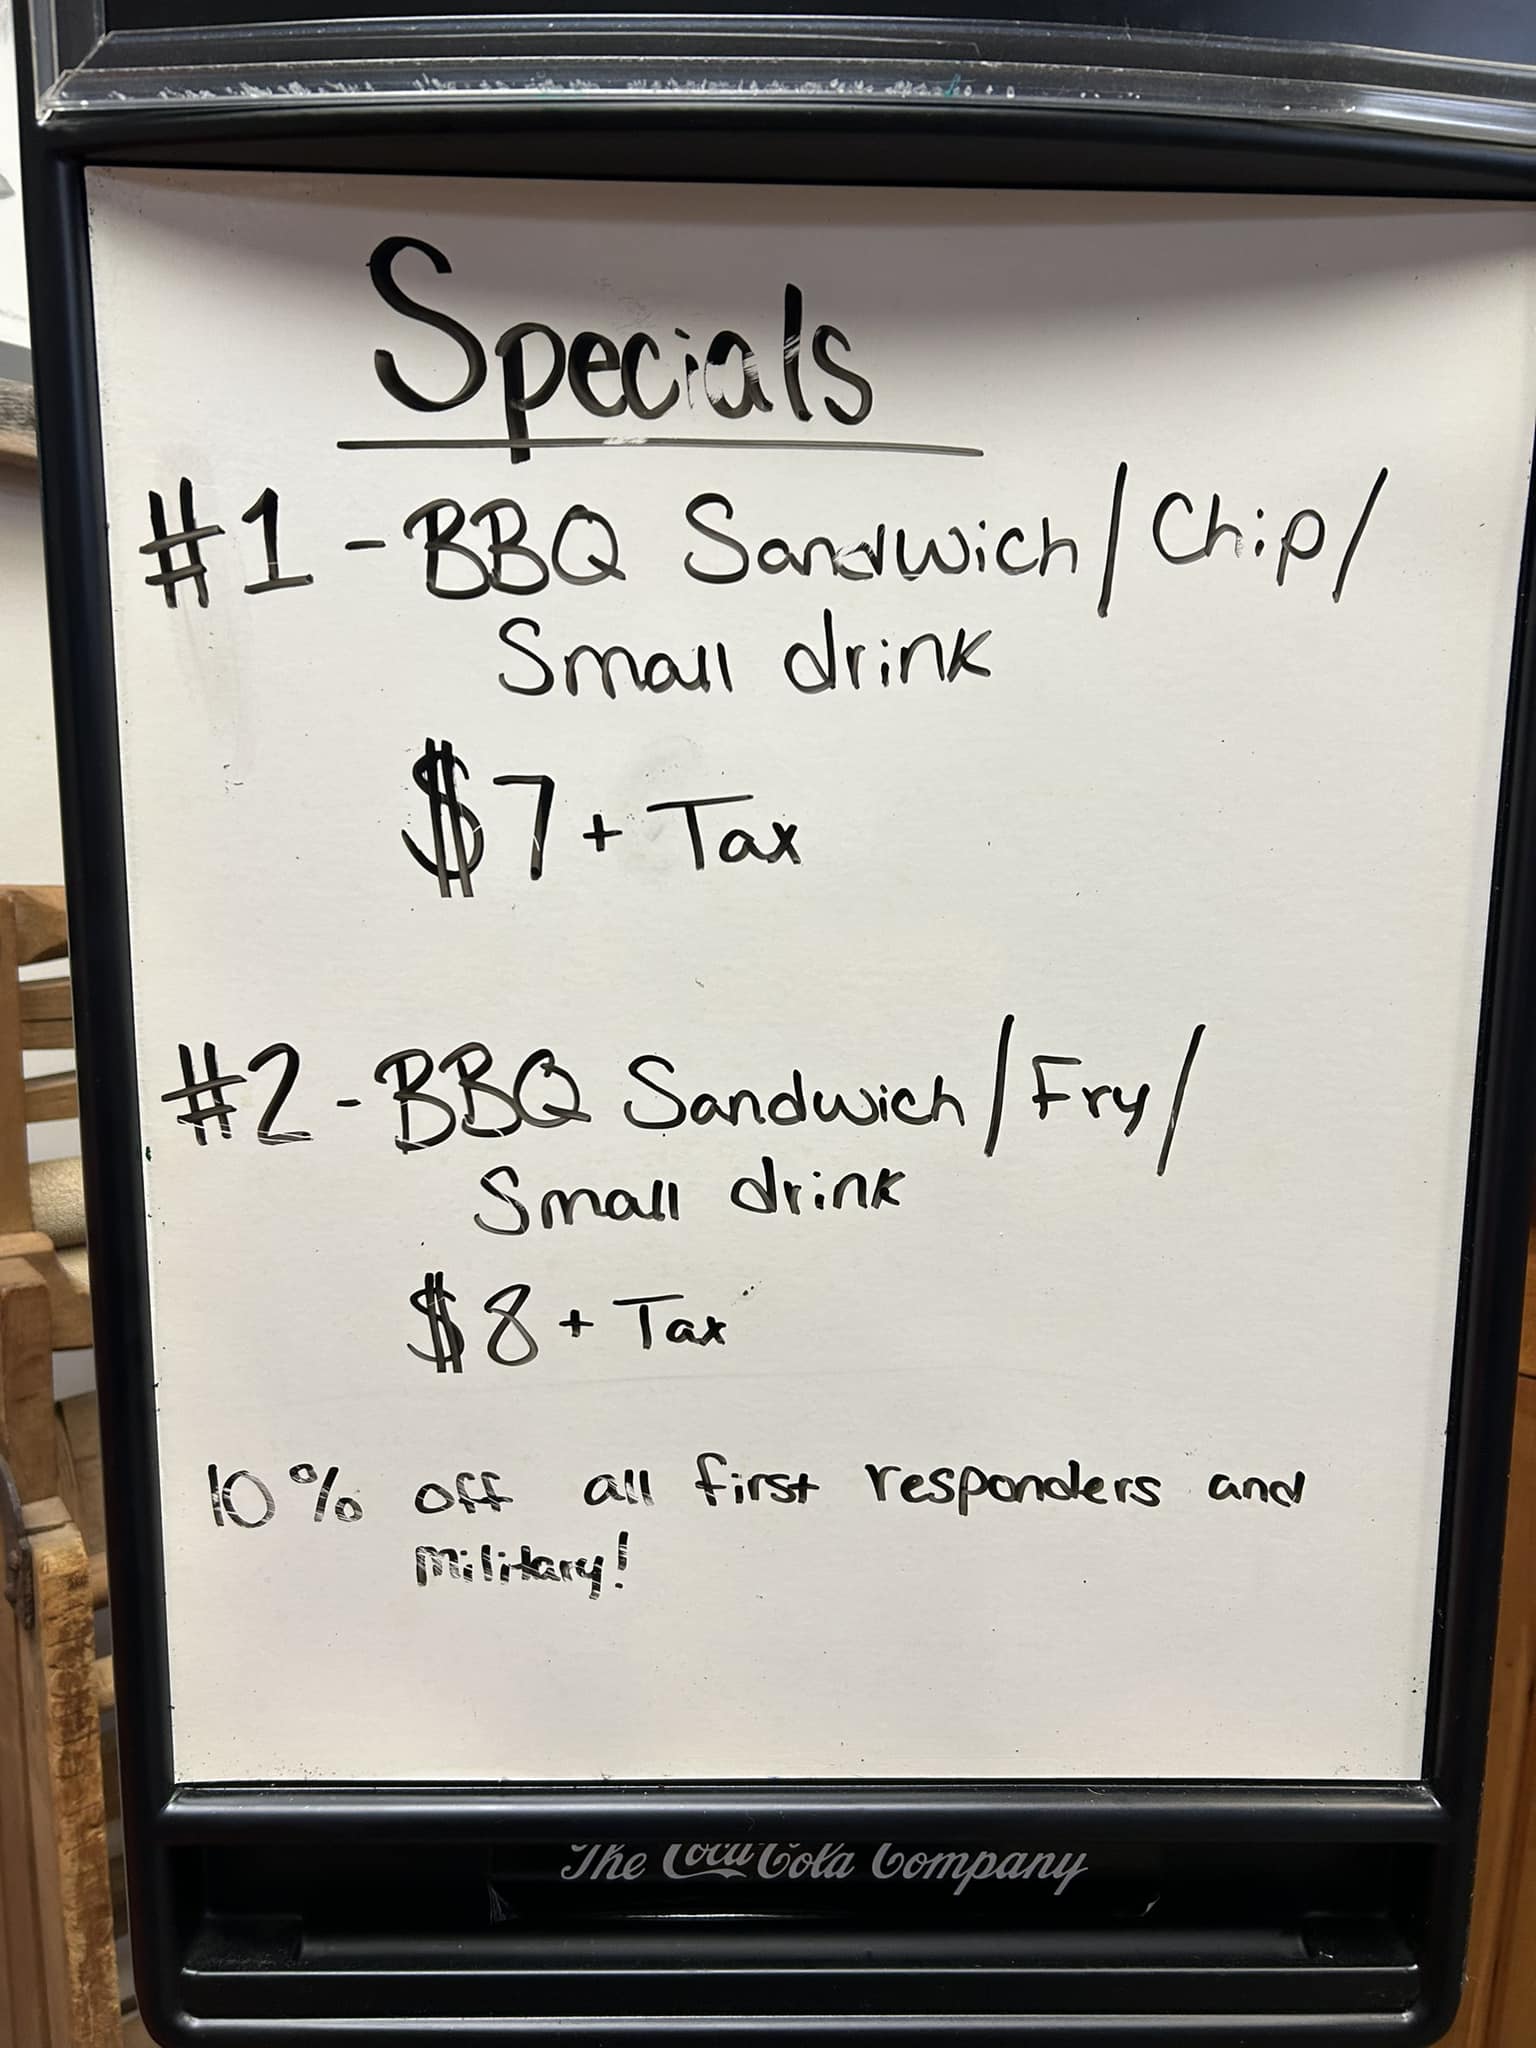 Specials
#1 - BBQ Sandwich / Chip /
Small drink
$7 + Tax
#2 - BBQ Sandwich / Fry /
Small drink
$8 + Tax
10% off all first responders and
military!
The Coca-Cola Company